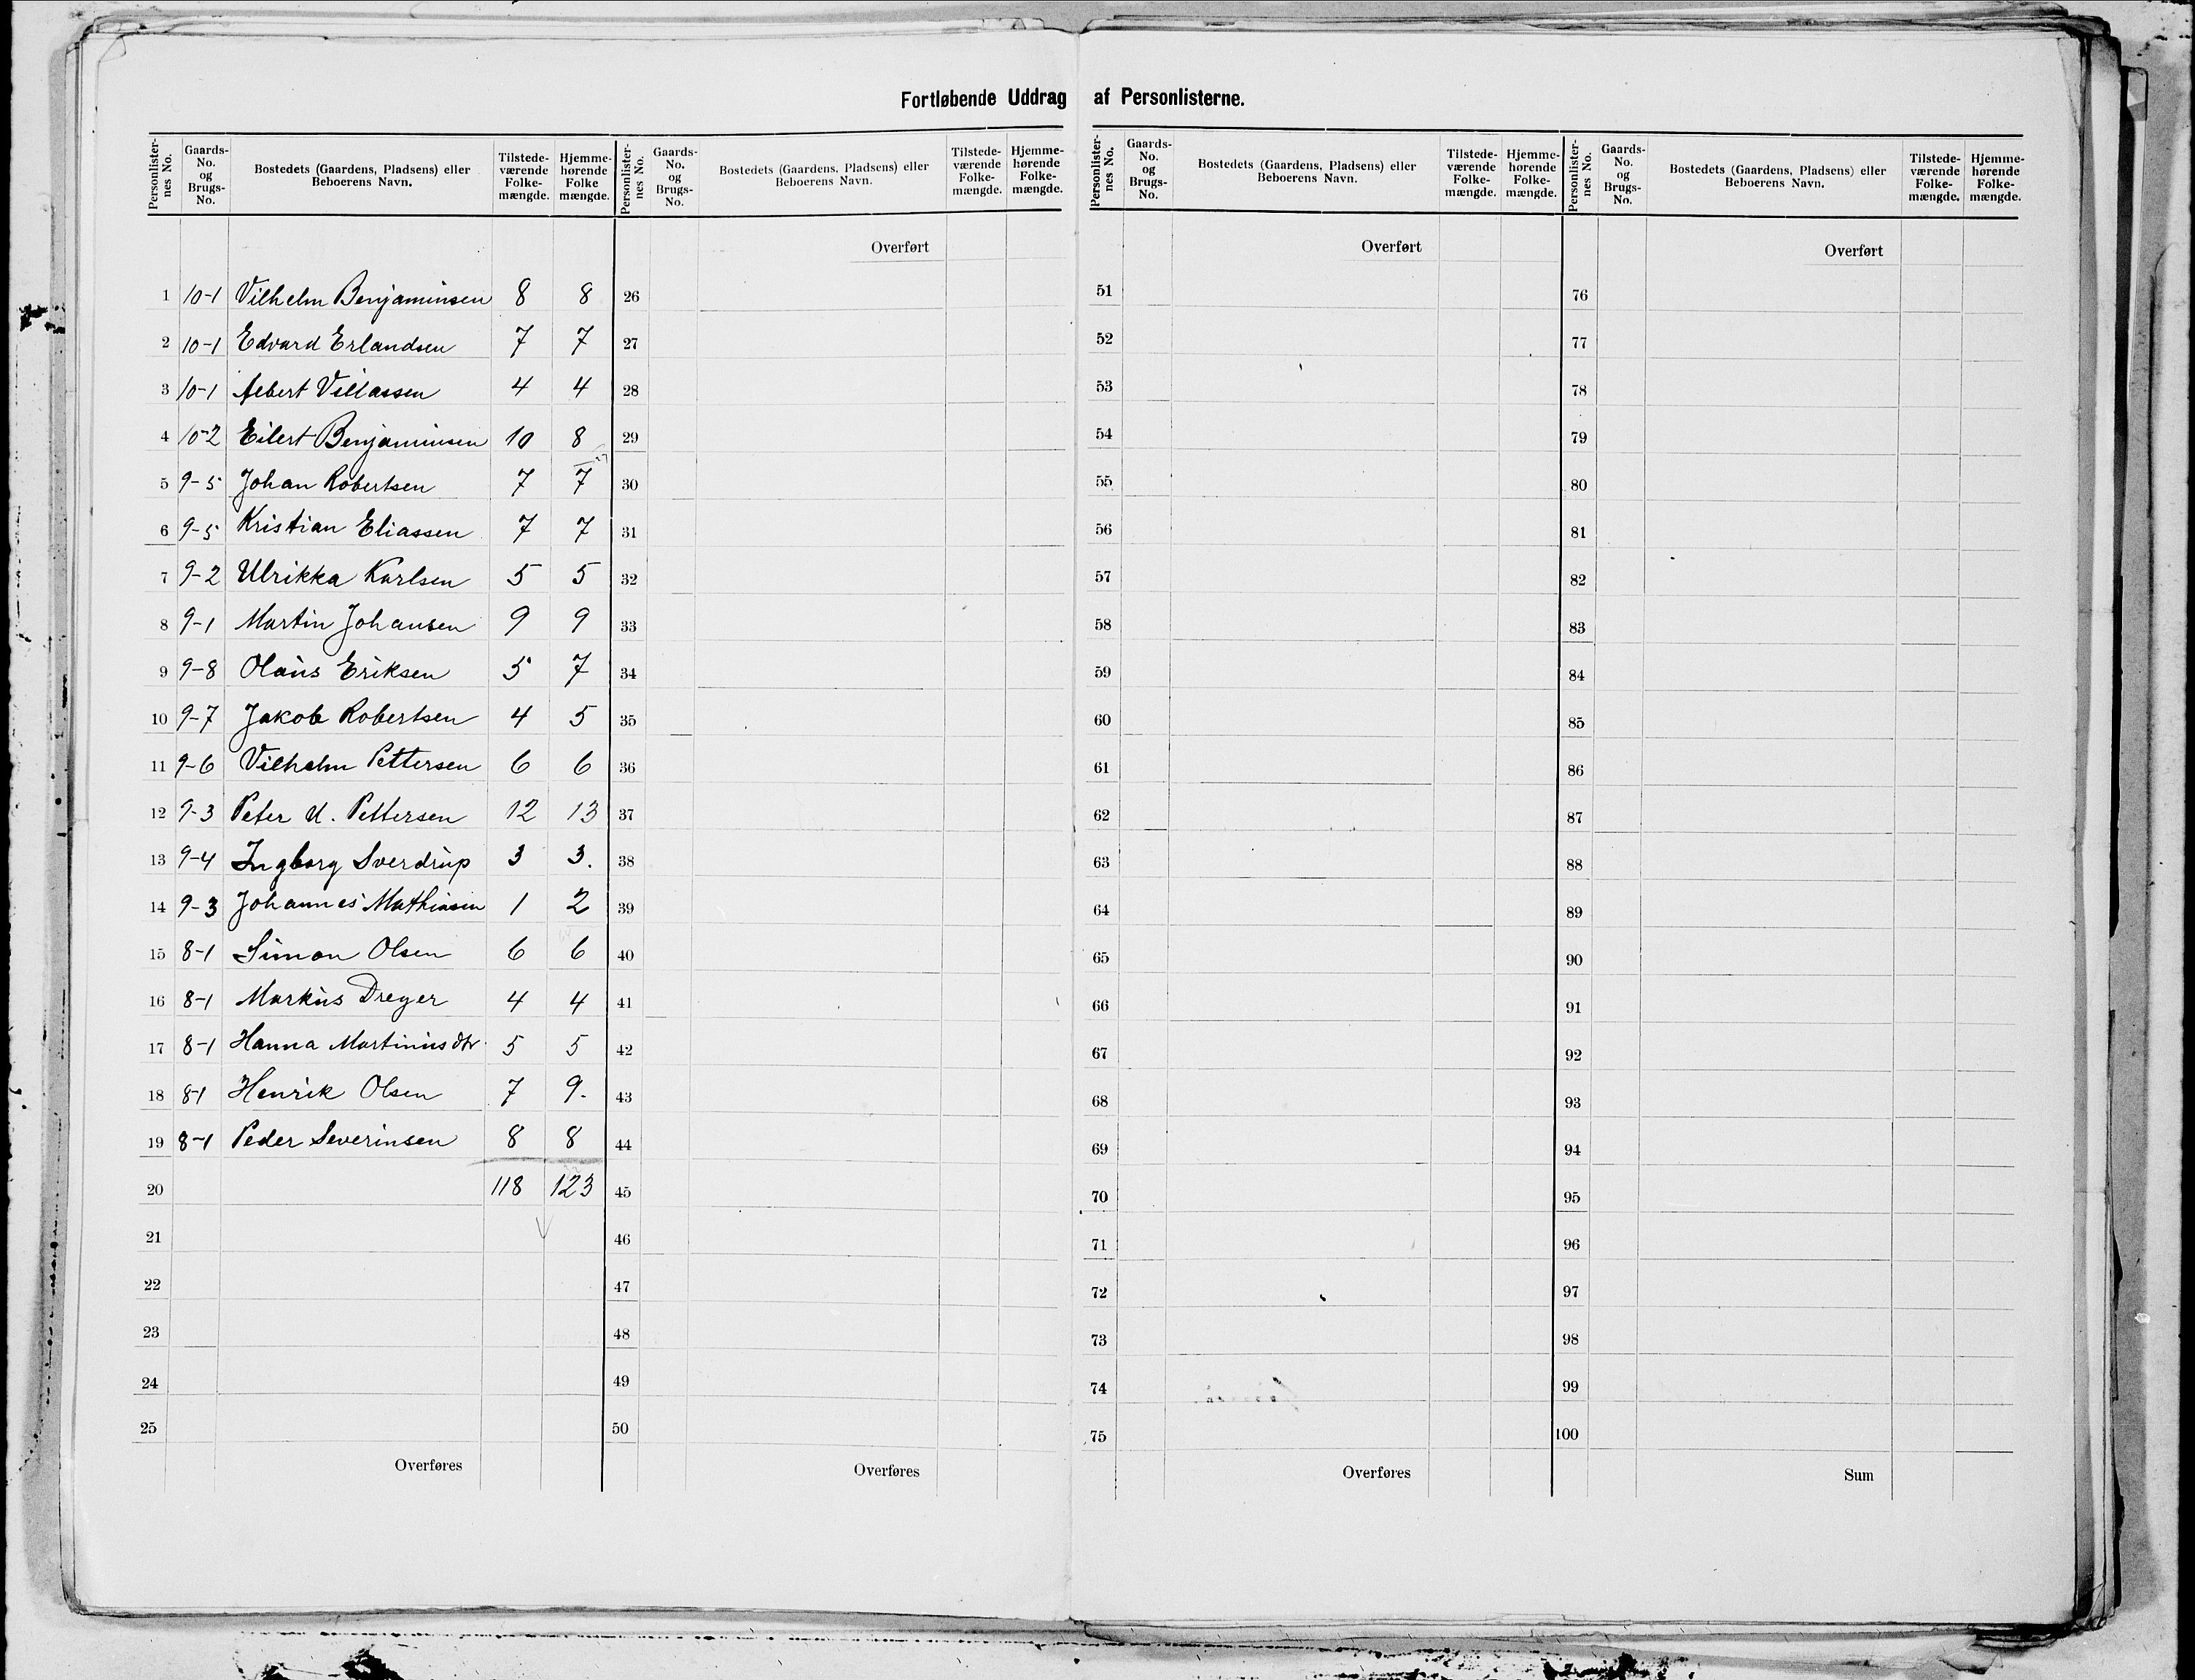 Fortløbende Uddrag af Personlisterne.
Personlisternes No. Gaards-No. og Brugs-No. Bostedets (Gaardens, Pladsens) eller Beboerens Navn. Tilstedeværende Folkemængde. Hjemmehørende Folke mængde.
1 10-1 Vilhelm Benjaminsen 8 8
2 10-1 Edvard Erlandsen 7 7
3 10-1 Albert Villassen 4 4
4 10-2 Eilert Benjaminsen 10 8
5 9-5 Johan Robertsen 7 7
6 9-5 Kristian Eliassen 7 7
7 9-2 Ulrikka Karlsen 5 5
8 9-1 Martin Johansen 9 9
9 9-8 Olaus Eriksen 5 7
10 9-7 Jakob Robertsen 4 5
11 9-6 Vilhelm Pettersen 6 6
12 9-3 Peter U. Pettersen 12 13
13 9-4 Ingborg Sverdrup 3 3.
14 9-3 Johannes Mathiasen 1 2
15 8-1 Simon Olsen 6 6
16 8-1 Markus Dreyer 4 4
17 8-1 Hanna Martinusdtr 5 5
18 8-1 Henrik Olsen 7 9.
19 8-1 Peder Severinsen 8 8
20 118 123
21
22
23
24
25
Overføres
Personlisternes No. Gaards-No. og Brugs-No. Bostedets (Gaardens. Pladsens) eller Beboerens Navn. Tilstedeværende Folkemængde. Hjemmehørende Folkemængde.
Overført
26
27
28
29
30
31
32
33
34
35
36
37
38
39
40
41
42
43
44
45
46
47
48
49
50
Overføres
Personlisternes No. Gaards-No. og Brugs-No. Bostedets (Gaardens, Pladsens) eller Beboerens Navn. Tilstedeværende Folkemængde. Hjemmehørende Folkemængde.
Overført
51
52
53
54
55
56
57
58
59
60
61
62
63
64
65
66
67
68
69
70
71
72
73
74
75
Overføres
Personlisternes No. Gaards-No. og Brugs-No. Bostedets (Gaardens, Pladsens) eller Beboerens Navn. Tilstedeværende Folkemængde. Hjemmehørende Folkemængde.
Overført
76
77
78
79
80
81
82
83
84
85
86
87
88
89
90
91
92
93
94
95
96
97
98
99
100
Sum